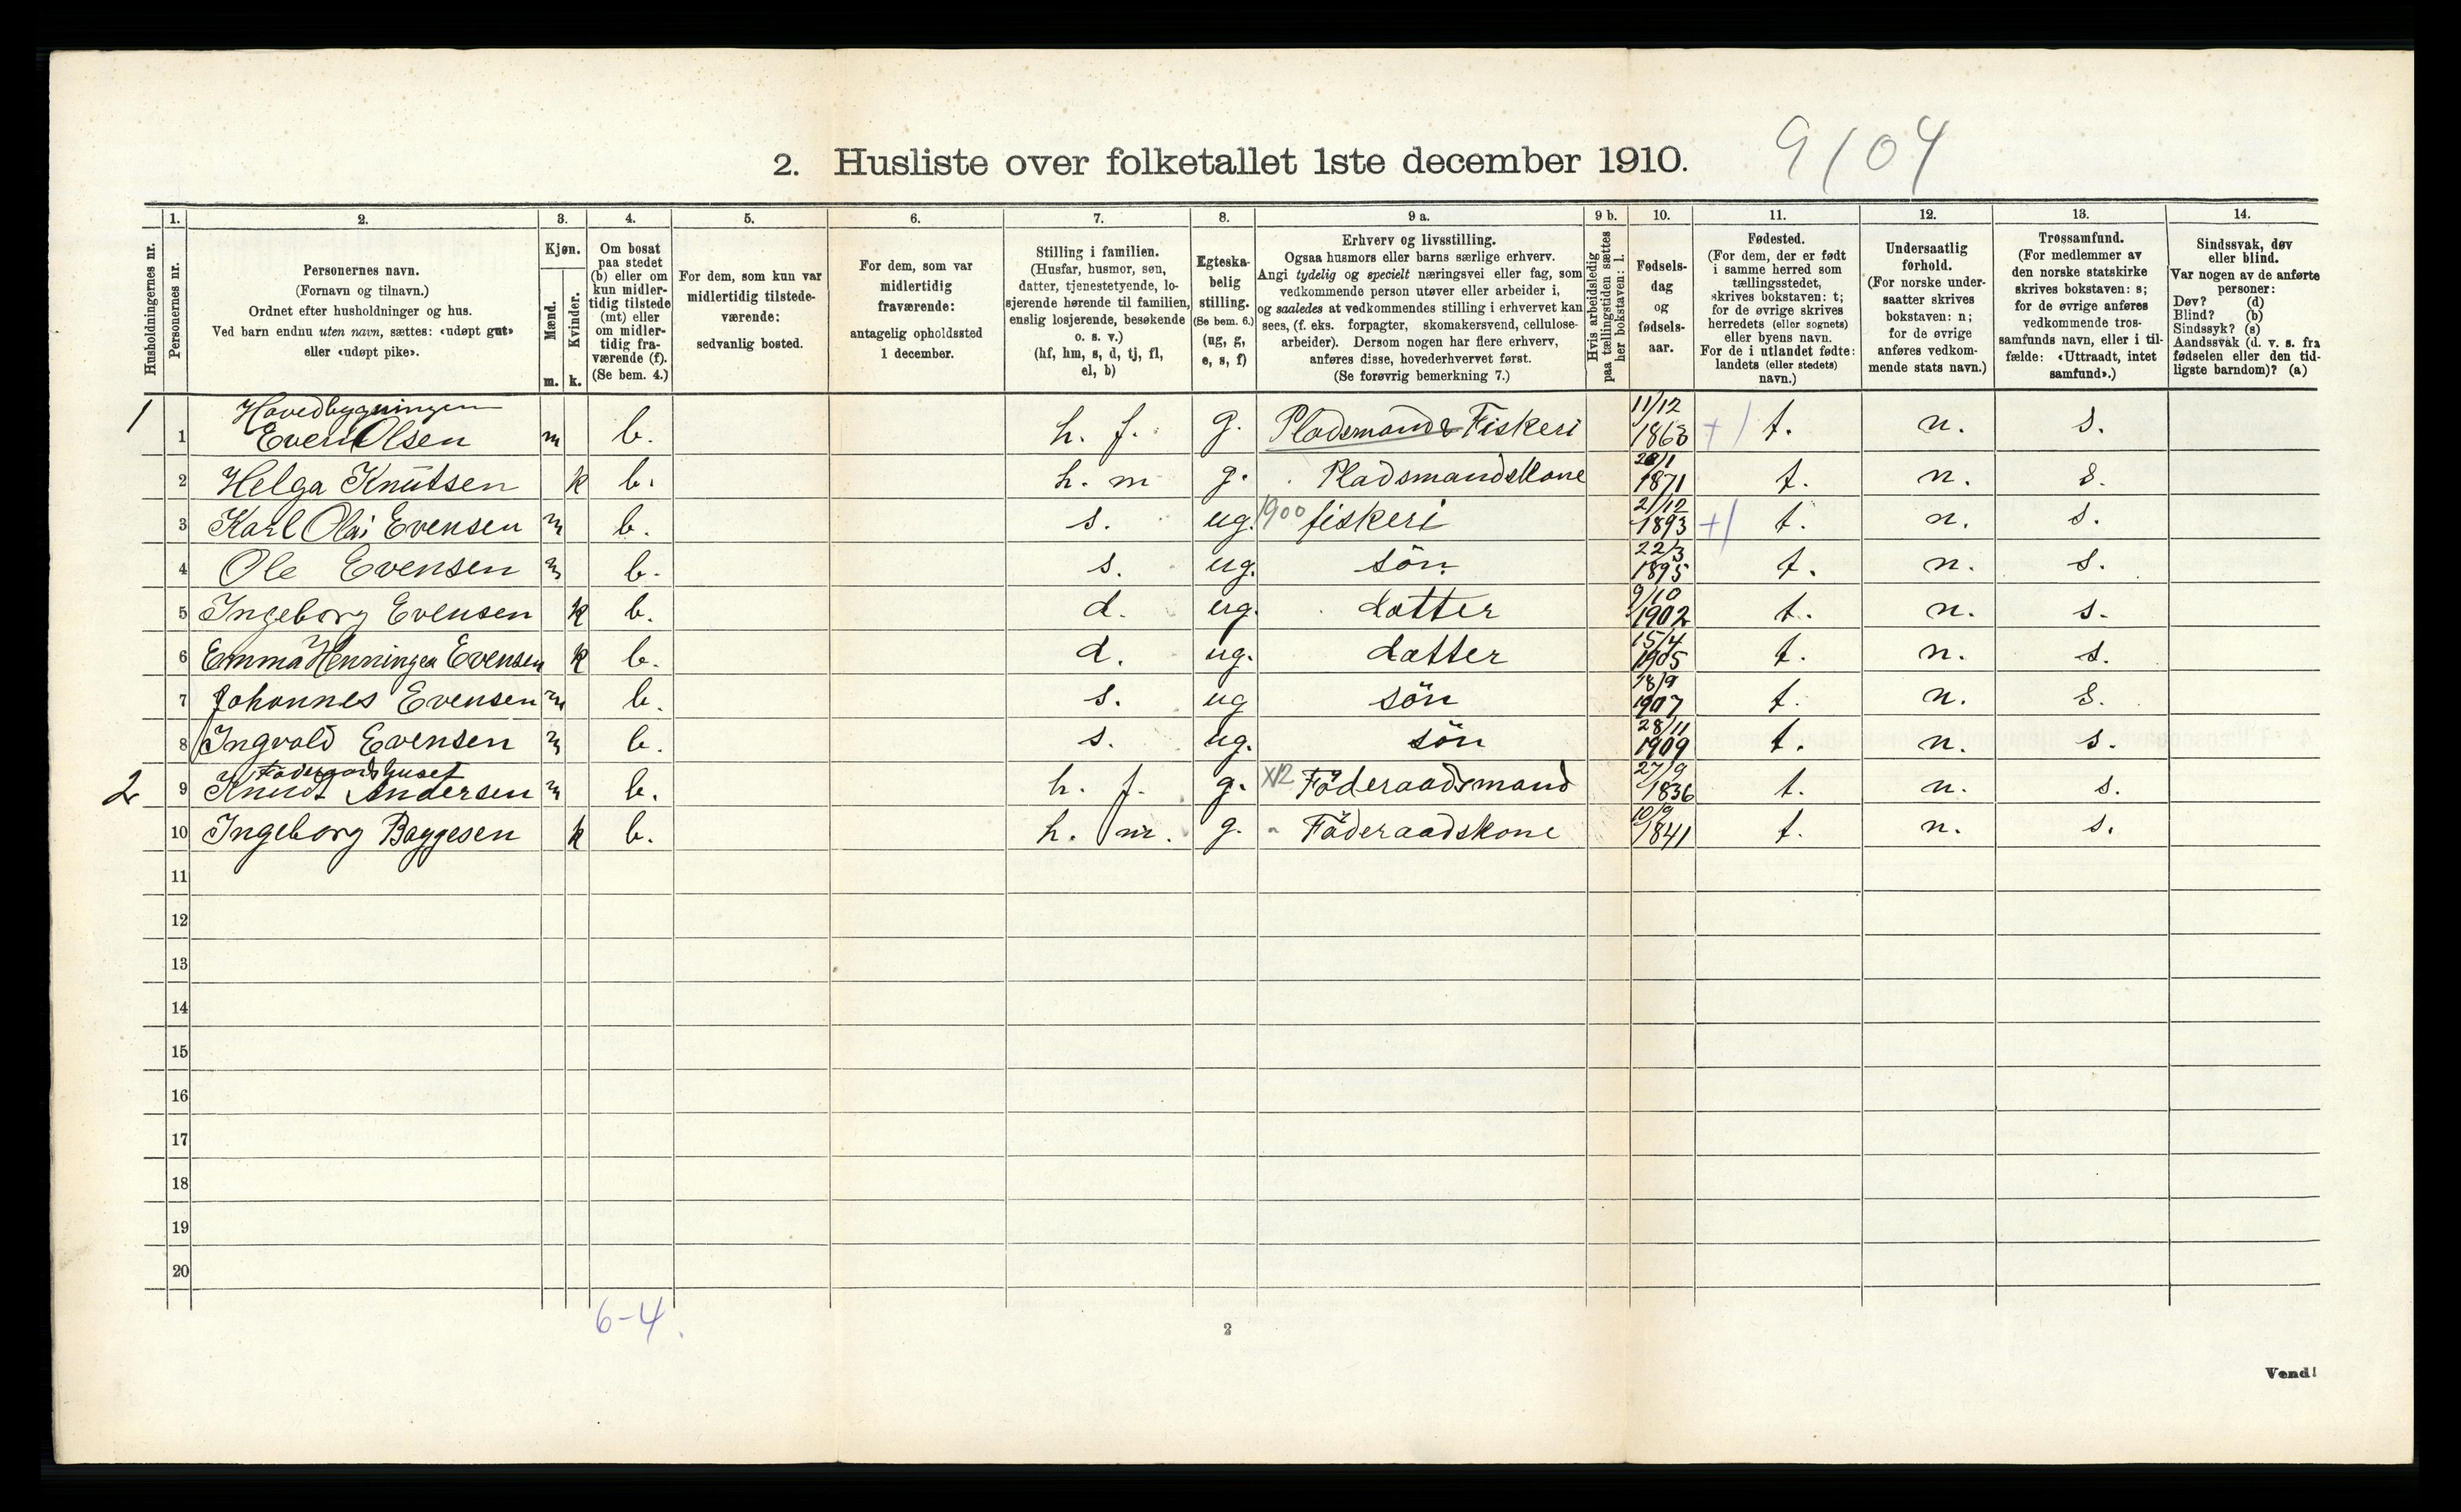 9/04
2. Husliste over folketallet 1ste december 1910.
1. 2. 3. 4. 5. 6. 7. 8. 9 a. 9 b. 10. 11. 12. 13. 14.
Husholdningernes nr.
Personernes nr.
Personernes navn.
(Fornavn og tilnavn.)
Ordnet efter husholdninger og hus.
Ved barn endnu uten navn, sættes: «udøpt gut»
eller «udøpt pike».
Kjøn.
Mænd.
m.
Kvinder.
k.
Om bosat
paa stedet
(b) eller om
kun midler-
tidig tilstede
(mt) eller
om midler-
tidig fra-
værende (f).
(Se bem. 4.)
For dem, som kun var
midlertidig tilstede-
værende:
sedvanlig bosted.
For dem, som var
midlertidig
fraværende:
antagelig opholdssted
1 december.
Stilling i familien.
(Husfar, husmor, søn,
datter, tjenestetyende, lo-
sjerende hørende til familien,
enslig losjerende, besøkende
o. s. v.)
(hf, hm, s, d, tj, fl,
el, b)
Egteska-
belig
stilling.
(Se bem. 6.)
(ug, g,
e, s, f)
Erhverv og livsstilling.
Ogsaa husmors eller barns særlige erhverv.
Angi tydelig og specielt næringsvei eller fag, som
vedkommende person utøver eller arbeider i,
og saaledes at vedkommendes stilling i erhvervet kan
sees, (f. eks. forpagter, skomakersvend, cellulose-
arbeider). Dersom nogen har flere erhverv,
anføres disse, hovederhvervet først.
(Se forøvrig bemerkning 7.)
Hvis arbeidsledig
paa tællingstiden sættes
her bokstaven: l.
Fødsels-
dag
og
fødsels-
aar.
Fødested.
(For dem, der er født
i samme herred som
tællingsstedet,
skrives bokstaven: t;
for de øvrige skrives
herredets (eller sognets)
eller byens navn.
For de i utlandet fødte:
landets (eller stedets)
navn.)
Undersaatlig
forhold.
(For norske under-
saatter skrives
bokstaven: n;
for de øvrige
anføres vedkom-
mende stats navn.)
Trossamfund.
(For medlemmer av
den norske statskirke
skrives bokstaven: s;
for de øvrige anføres
vedkommende tros-
samfunds navn, eller i til-
fælde: «Uttraadt, intet
samfund».)
Sindssvak, døv
eller blind.
Var nogen av de anførte
personer:
Døv? (d)
Blind? (b)
Sindssyk? (s)
Aandssvak (d. v. s. fra
fødselen eller den tid-
ligste barndom)? (a)
Hovedbygningen
1 1 Even Olsen m b. h. f. g. Pladsmand & Fiskeri 11/12 1863 +/ t. n. s.
2 Helga Knutsen k b. h. m g. Pladsmandskone 1871 t. n. s.
3 Karl Olai Evensen m b. s. ug. 1900 fiskeri 21/12 1893 +/ t. n. s.
4 Ole Evensen m b. s. ug. sön 22/3 1895 t. n. s.
5 Ingeborg Evensen k b. d. ug. datter 9/10 1902 t. n. s.
6 Emma Henningea Evensen k b. d. ug. datter 15/4 1905 t. n. s.
7 Johannes Evensen m b. s. ug sön 18/9 1907 t. n. s.
8 Ingvald Evensen m b. s. ug. sön 28/11 1909 t. n. s.
2 9 Knudt Andersen m b. h. f. g. X12 Föderaadsmand 27/9 1836 t. n. s.
10 Ingeborg Baggesen k b. h. m. g. Föderaadskone 10/9 1841 t. n. s.
11
12
13
14
15
16
17
18
19
20
6-4.
2
Vend!